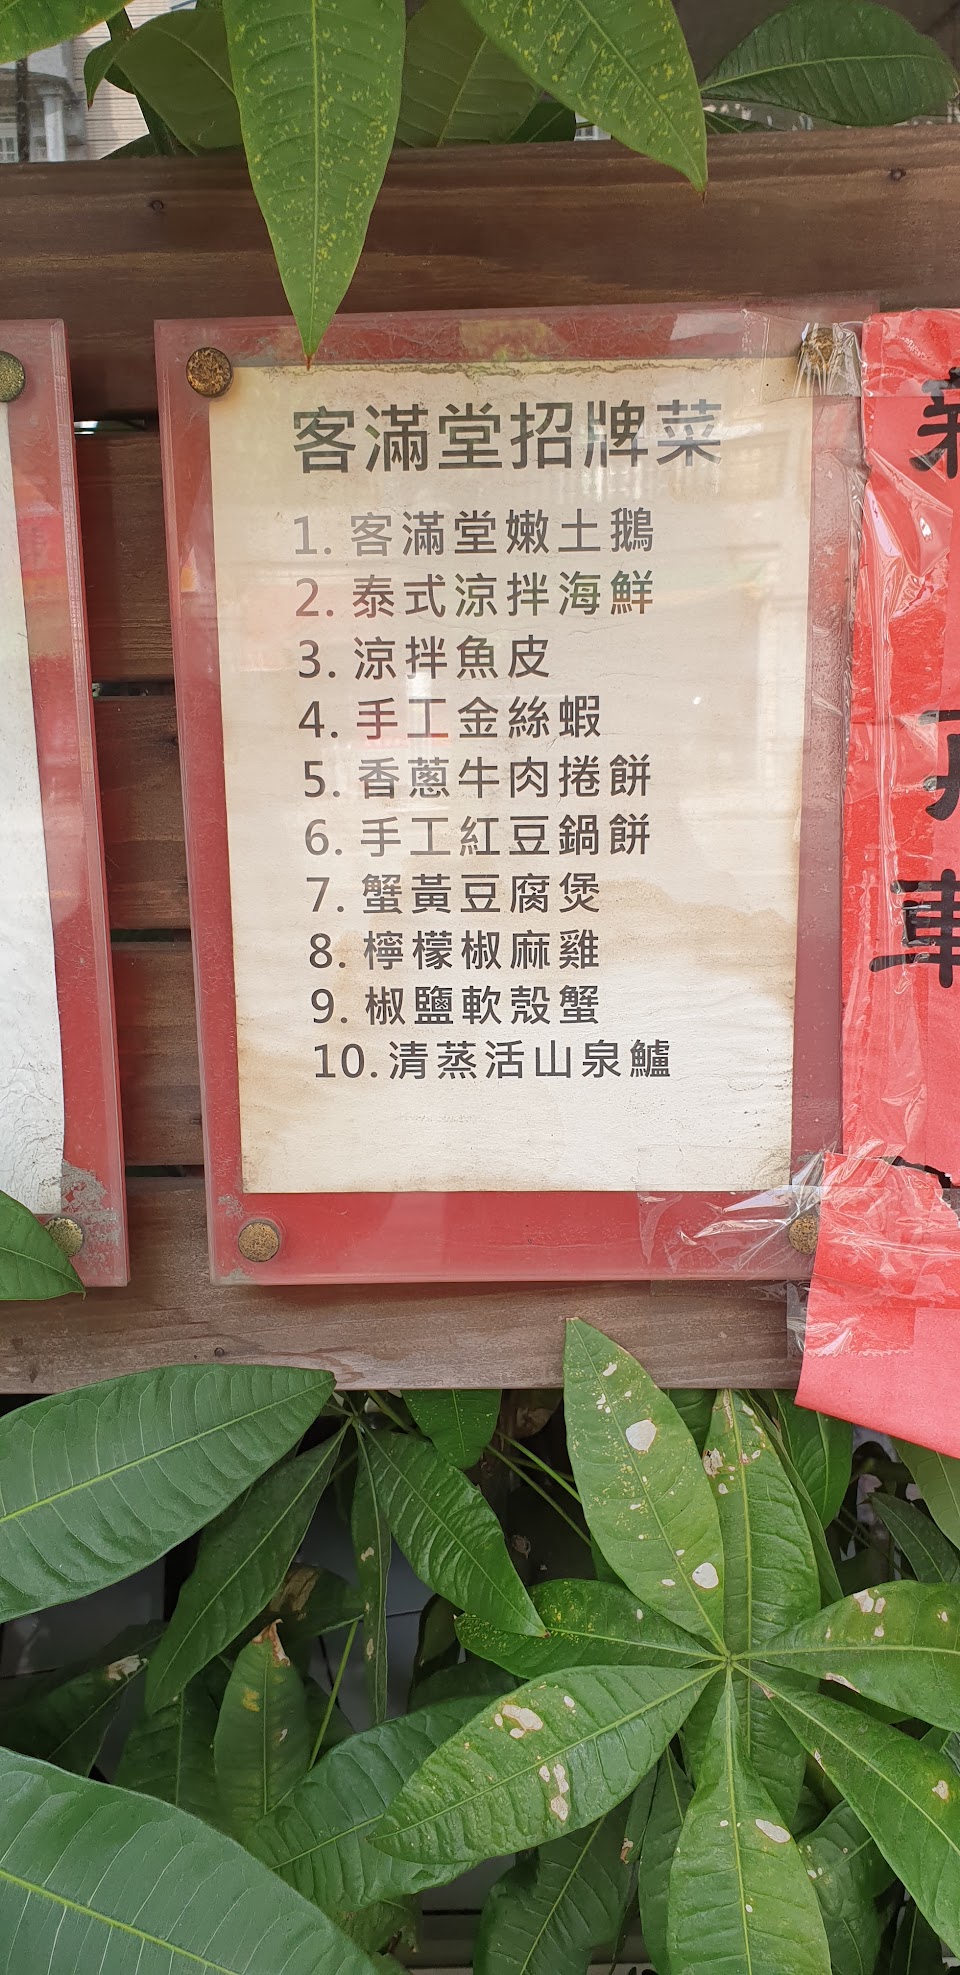 客滿堂招牌菜
1. 客滿堂嫩土鵝
2. 泰式涼拌海鮮
3. 涼拌魚皮
4. 手工金絲蝦
5. 香蔥牛肉捲餅
6. 手工紅豆鍋餅
7. 蟹黃豆腐煲
8. 檸檬椒麻雞
9. 椒鹽軟殼蟹
10. 清蒸活山泉鱸
車